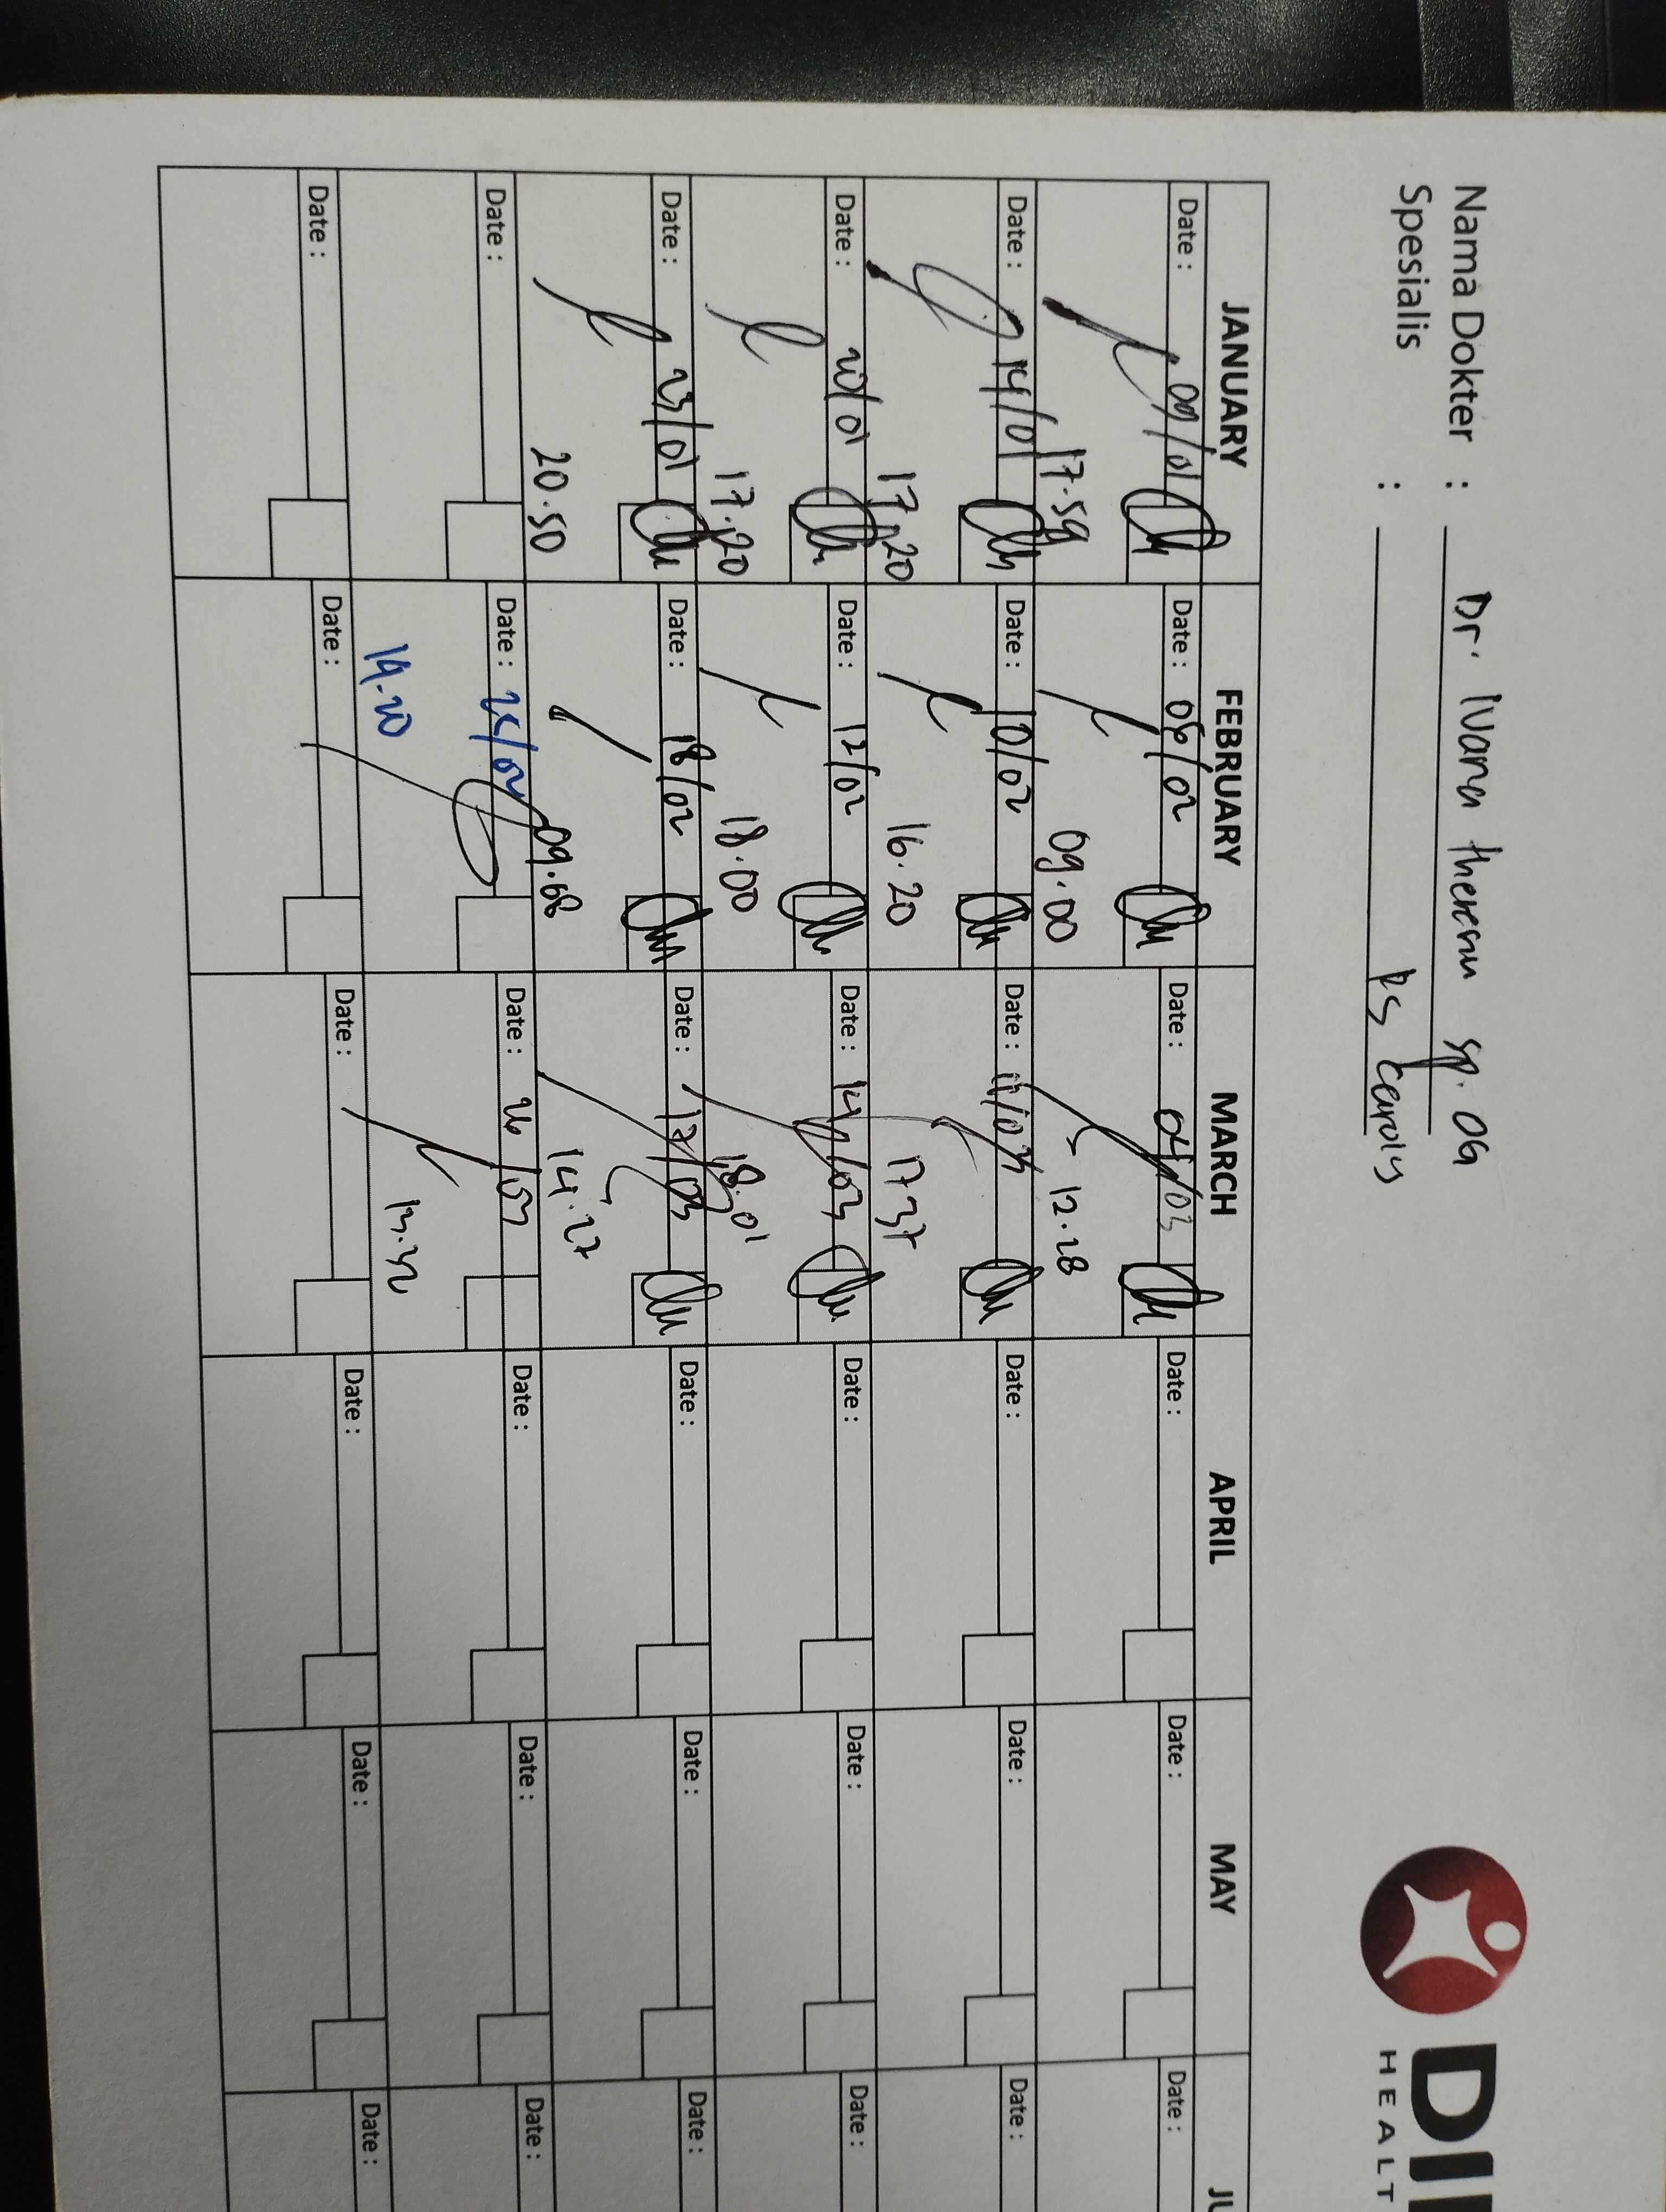 Nama Dokter : Dr. Ivana theresia sp. OG
Spesialis : RS Carolus
DI
HEALT
JANUARY FEBRUARY MARCH APRIL MAY JU
Date : 09/01 Date : 06/02 Date : 04/03 Date : Date : Date :
17.59 09.00 12.28
Date : 14/01 Date : 10/02 Date : 11/03 Date : Date : Date :
17.20 16.20 17.37
Date : 20/01 Date : 12/02 Date : 14/03 Date : Date : Date :
17.20 18.00 18.01
Date : 23/01 Date : 18/02 Date : 17/03 Date : Date : Date :
20.50 14.27
Date : Date : Date : 26/03 Date : Date : Date :
14.20 13.32
Date : Date : Date : Date : Date : Date :